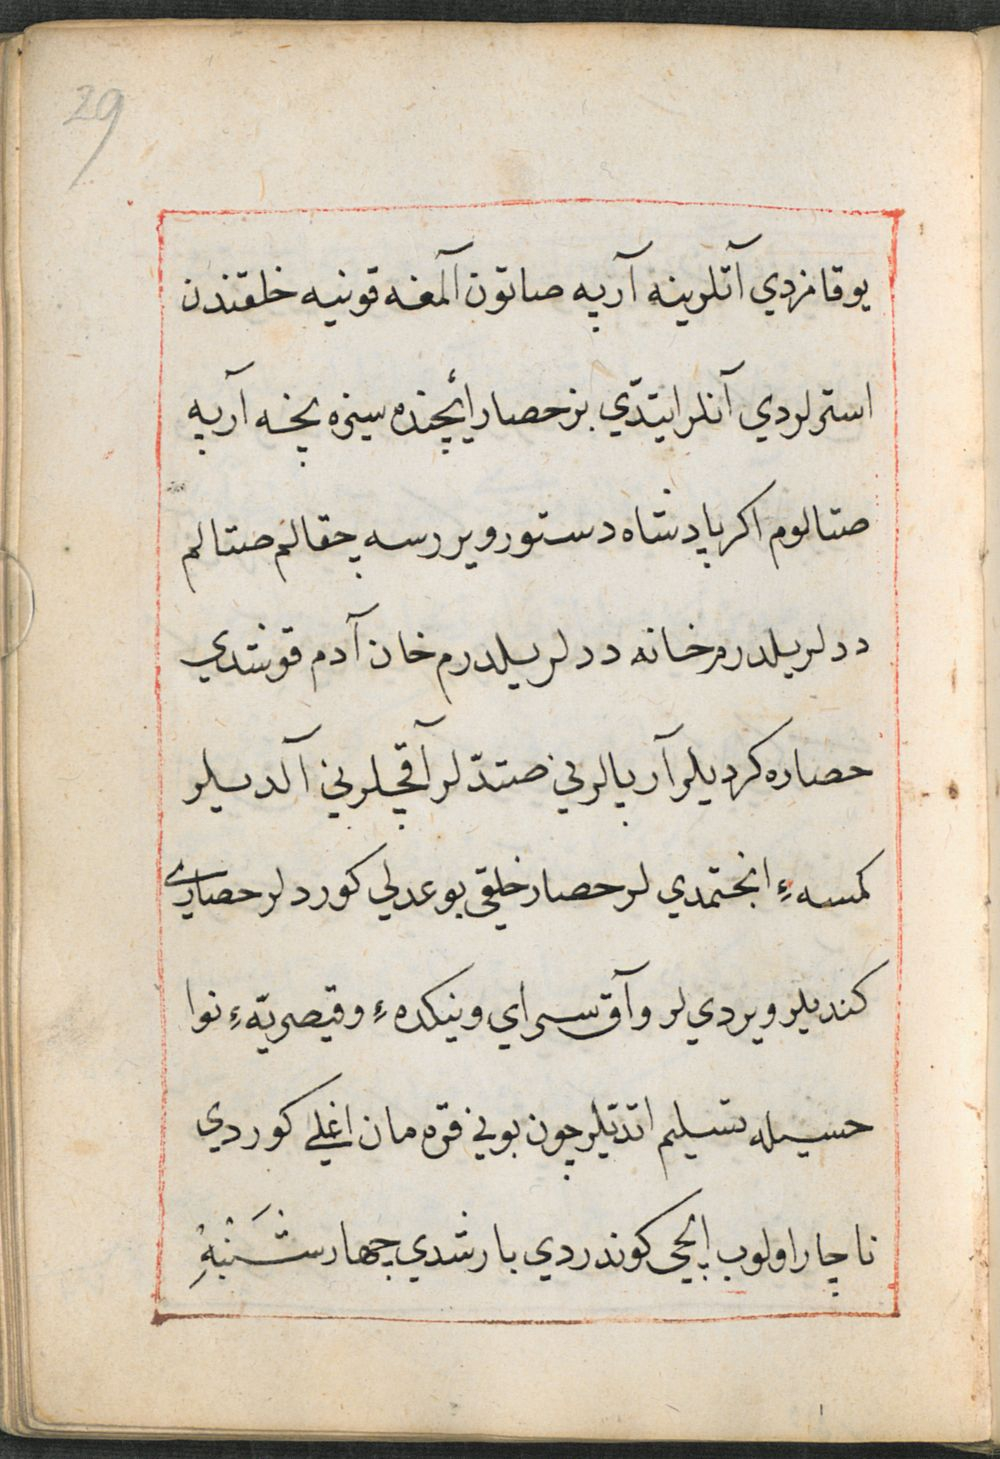 29
يوقامزدي آتلرينه آرپه صاتون آلمغه قونيه خلقندن
استرلردي آنلر ايتدّي بز حصار ايچنده سيزه نخسه آرپه
صتالوم اكر پادشاه دستور ويررسه چقالم صتالم
ددلر يلدرم خانه ددلر يلدرم خان آدم قوشدي
حصاره كرديلر آرپالرني صتدّلر آقچلرني آلديلر
كمسهءِ انجتمدي لر حصار خلقي بو عدلي كوردلر حصاري
كنديلر ويردي لر وآق سراي ونيكدهءِ وقيصريّهءِ نوا
حسيله تسليم اتديلر چون بوني قره مان اغلي كوردي
ناچار اولوب ايلچي كوندردي بارشدي چهار شَنْبَهْ